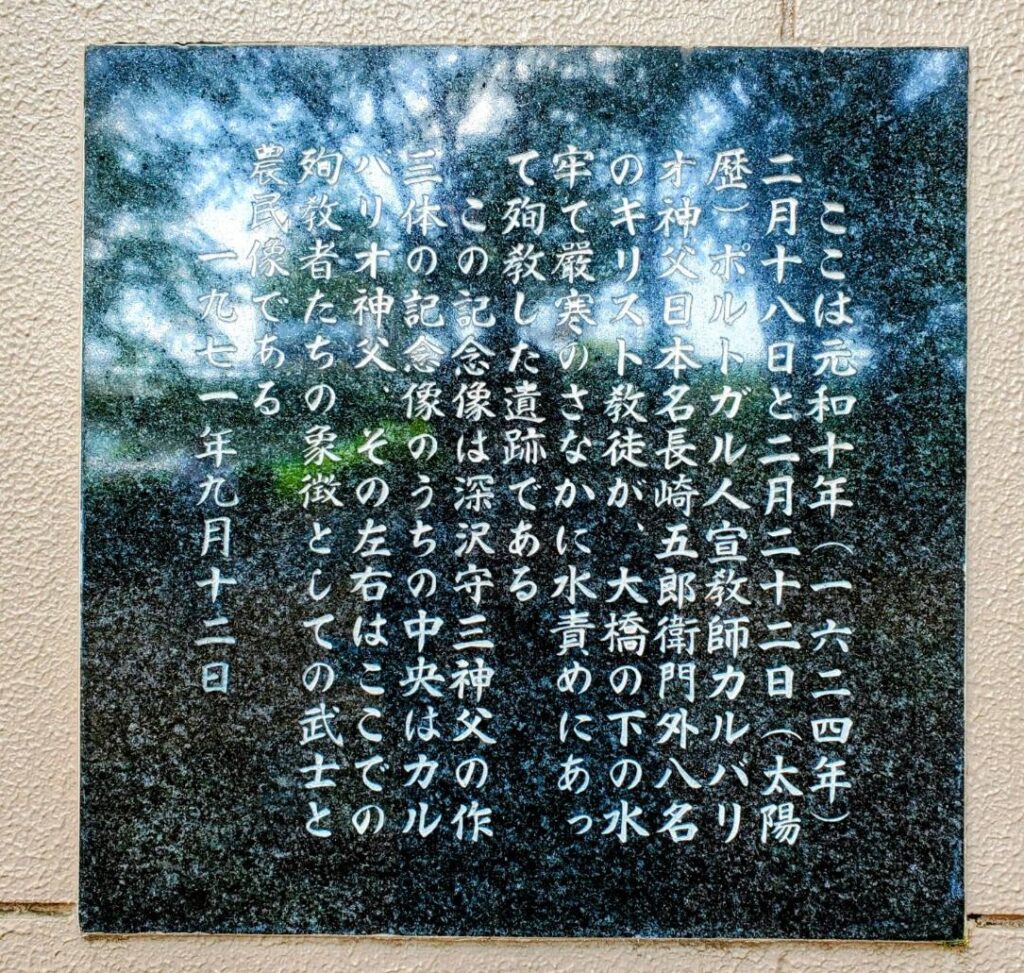 ここは元和十年(一六二四年)
二月十八日と二月二十二日(太陽
歴)ポルトガル人宣教師カルバリ
オ神父日本名長崎五郎衛門外八名
のキリスト教徒が、大橋の下の水
牢で厳寒のさなかに水責めにあっ
て殉教した遺跡である
この記念像は深沢守三神父の作
三体の記念像のうちの中央はカル
ハリオ神父、その左右はここでの
殉教者たちの象徴としての武士と
農民像である
一九七一年九月十二日